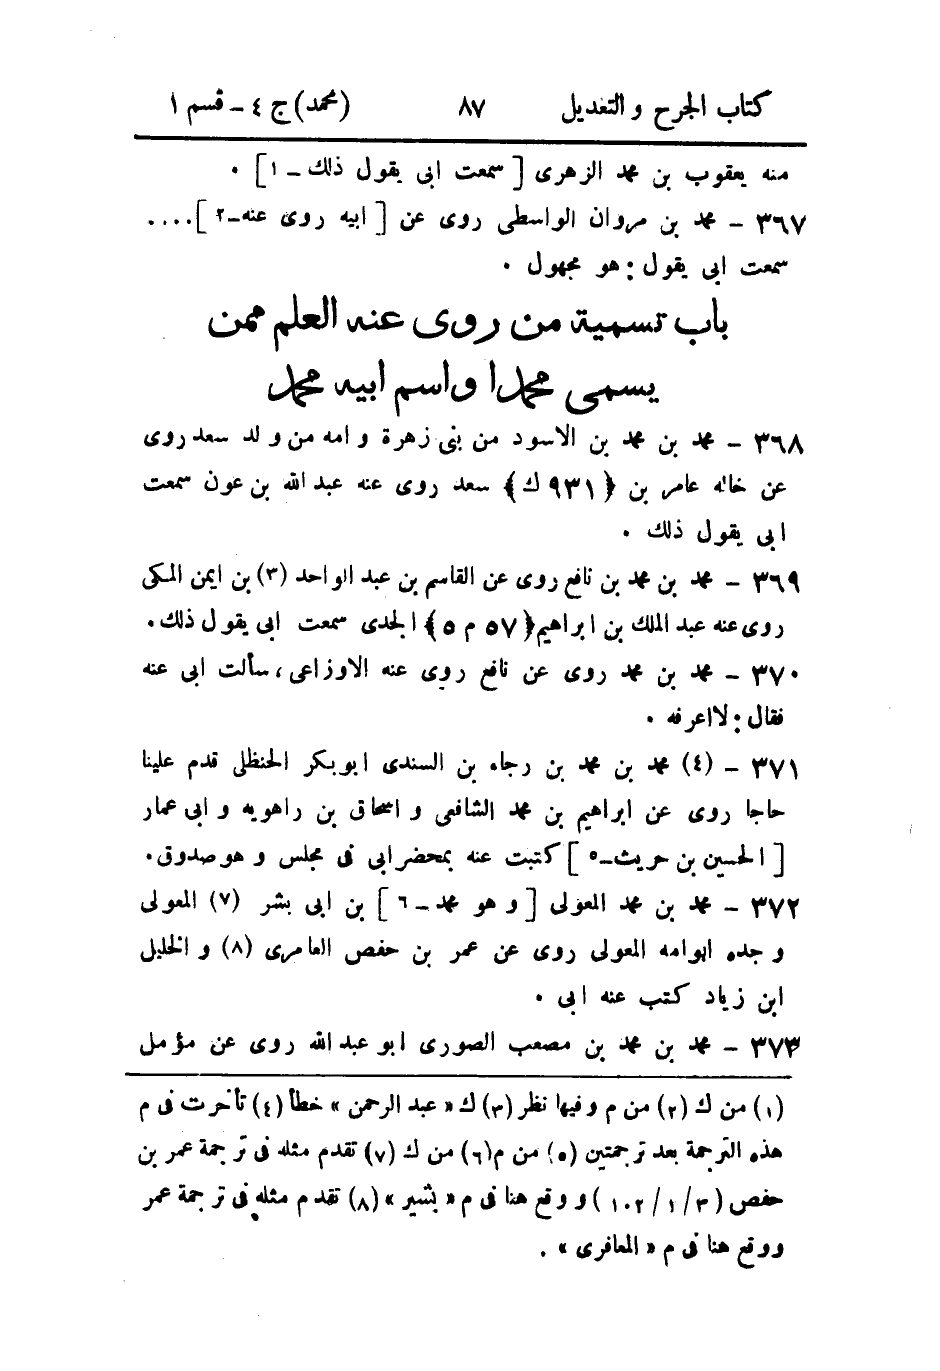 كتاب الجرح والتعديل ٨٧ (محمد) ج ٤ - قسم ١
منه يعقوب بن محمد الزهرى [ سمعت ابى يقول ذلك - ١ ] .
٣٦٧ - محمد بن مروان الواسطى روى عن [ ابيه روى عنه - ٢ ] ....
سمعت ابى يقول : هو مجهول .
باب تسمية من روى عنه العلم ممن
يسمى محمدا واسم ابيه محمد
٣٦٨ - محمد بن محمد بن الاسود من بنى زهرة وامه من ولد سعد روى
عن خاله عامر بن ﴿ ٩٣١ ك ﴾ سعد روى عنه عبد الله بن عون سمعت
ابى يقول ذلك .
٣٦٩ - محمد بن محمد بن نافع روى عن القاسم بن عبد الواحد (٣) بن ايمن المكى
روى عنه عبد الملك بن ابراهيم ﴿ ٥٧ م ٥ ﴾ الجدى سمعت ابى يقول ذلك .
٣٧٠ - محمد بن محمد روى عن نافع روى عنه الاوزاعى ، سألت ابى عنه
فقال : لا اعرفه .
٣٧١ - (٤) محمد بن محمد بن رجاء بن السندى ابو بكر الحنظلى قدم علينا
حاجا روى عن ابراهيم بن محمد الشافعى واسحاق بن راهويه وابى عمار
[ الحسين بن حريث - ٥ ] كتبت عنه بمحضر ابى فى مجلس وهو صدوق .
٣٧٢ - محمد بن محمد المعولى [ وهو محمد - ٦ ] بن ابى بشر (٧) المعولى
وجده ابو امه المعولى روى عن عمر بن حفص العامرى (٨) والخليل
ابن زياد كتب عنه ابى .
٣٧٣ - محمد بن محمد بن مصعب الصورى ابو عبد الله روى عن مؤمل
(١) من ك (٢) من م وفيها نظر (٣) ك « عبد الرحمن » خطأ (٤) تأخرت فى م
هذه الترجمة بعد ترجمتين (٥) من م (٦) من ك (٧) تقدم مثله فى ترجمة عمر بن
حفص (٣ / ١ / ١٠٢) ووقع هنا فى م « بشير » (٨) تقدم مثله فى ترجمة عمر
ووقع هنا فى م « المعافرى » .